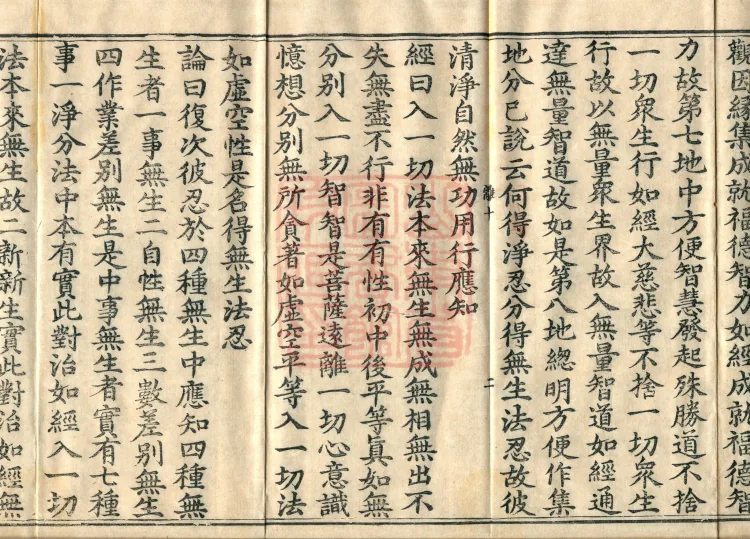 觀因緣集成就福德智力如經成就福德智
力故第七地中方便智慧發起殊勝道不捨
一切衆生行如經大慈悲等不捨一切衆生
行故以無量衆生界故入無量智道如經通
達無量智道故如是第八地總明方便作集
地分已說云何得淨忍分得無生法忍故彼
十 二
清淨自然無功用行應知
經曰入一切法本來無生無成無相無出不
失無盡不行非有有性初中後平等真如無
分別入一切智智是菩薩遠離一切心意識
憶想分別無所貪著如虛空平等入一切法
如虛空性是名得無生法忍
論曰復次彼忍於四種無生中應知四種無
生者一事無生二自性無生三數差別無生
四作業差別無生是中事無生者實有七種
事一淨分法中本有實此對治如經入一切
法本來無生故二新新生實此對治如經無